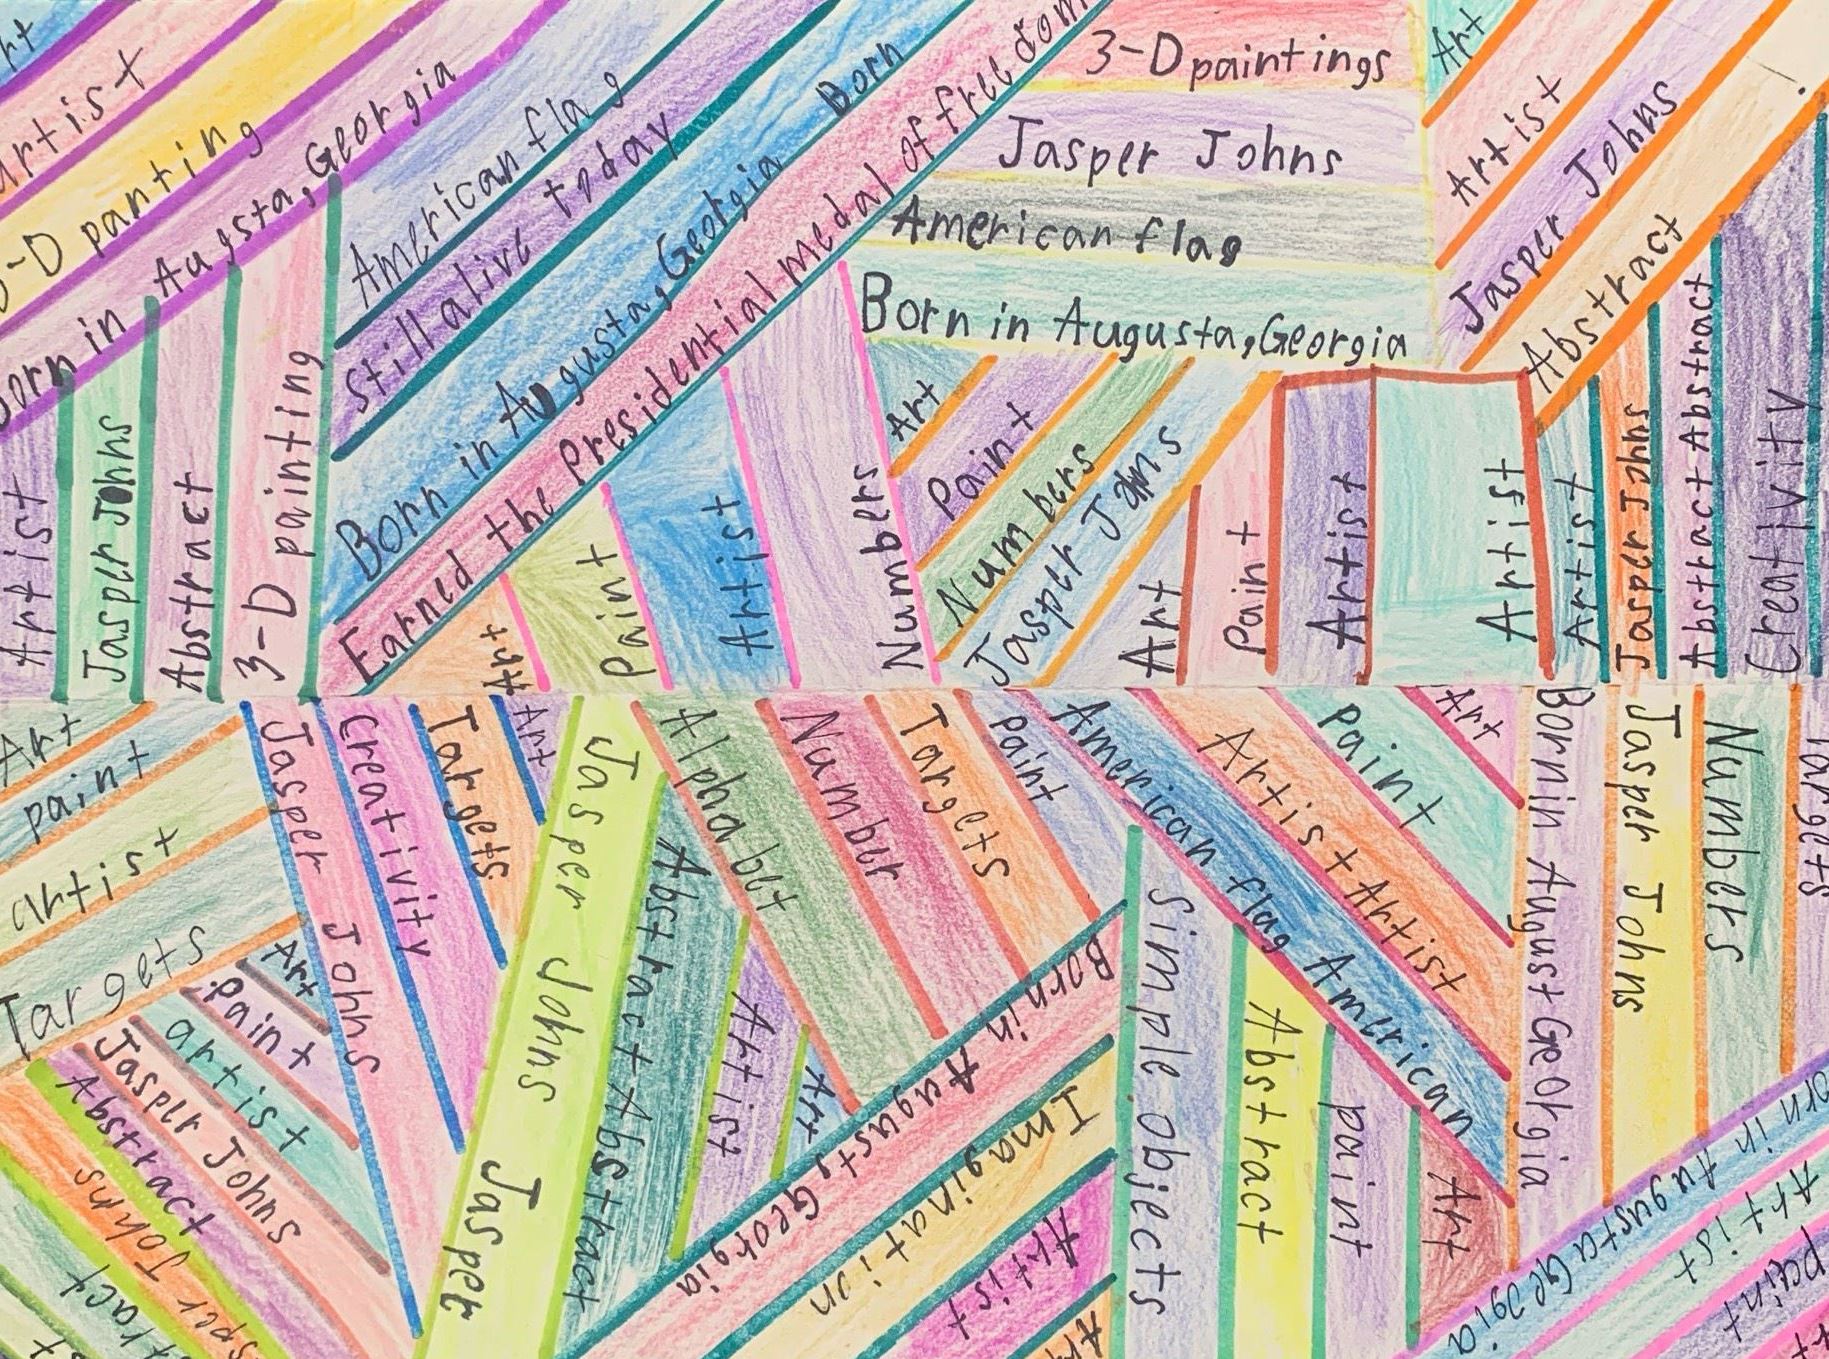 artist
panting
Born in Augusta, Georgia
American flag
Still alive today
Born in Augusta, Georgia Born
Earned the Presidential medal of freedom
3-D paintings
Jasper Johns
American flag
Born in Augusta, Georgia
Art
Artist
Jasper Johns
Abstract
Artist
Jasper Johns
Abstract
3-D painting
Art
Paint
Artist
Numbers
Art
Paint
Numbers
Jasper Johns
Art
Paint
Artist
Artist
Artist
Jasper Johns
Abstract Abstract
Creativity
Art
paint
artist
Targets
Jasper Johns
Creativity
Targets
Art
Jasper Johns Jasper
Abstract Abstract
Artist
Art
Alphabet
Number
Targets
Paint
American flag American
Artist Artist
Paint
Art
Born in August Georgia
Jasper Johns
Numbers
Targets
Art
Paint
artist
Jasper Johns
Abstract
Johns
Born in Augusty Georgia
Imagination
Artist
Simple objects
Abstract
paint
Art
in Augusta Georgia
Artist
paint